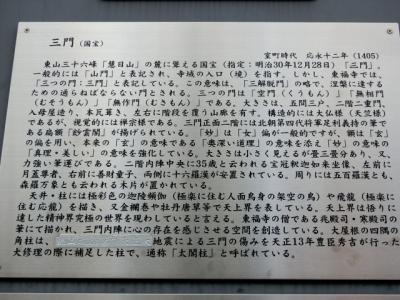 三門（国宝）
室町時代 応永十二年（1405）
東山三十六峰「慧日山」の麓に聳える国宝（指定：明治30年12月28日）「三門」。
一般的には「山門」と表記され、寺域の入口（境）を指す。しかし、東福寺では、
「三つの門：三門」と表記している。この意味は、「三解脱門」の略で、涅槃に達する
ための通らねばならない門とされる。三つの門は「空門（くうもん）」「無相門
（むそうもん）」「無作門（むさもん）」である。大きさは、五間三戸、二階二重門、
入母屋造り、本瓦葺き、左右に階段を覆う山廊を有す。構造的には大仏様（天竺様）
であるが、視覚的には禅宗様である。三門正面二階には北朝第四代将軍足利義持の筆で
ある扁額「妙雲閣」が掲げられている。「妙」は「女」偏が一般的ですが、額は「玄」
の偏を用い、本来の「玄」の意味である「奥深い道理」の意味を添え「妙」の意味の
「真理・美しい」の意味を強化している。大きさは小さく見えるが畳三畳分あり、又、
力強い筆運びである。二階内陣中央に35歳と云われる宝冠釈迦如来坐像、左前に
月蓋長者、右前に善財童子、両側に十六羅漢が安置されている。周りには五百羅漢とも、
森羅万象とも云われる木片が置かれている。
天井・柱には極彩色の迦陵頻伽（極楽に住む人面鳥身の架空の鳥）や飛龍（極楽に
住む応龍）を描き、又金襴巻や牡丹唐草等で天上界を表している。天上界は悟りに
達した精神界究極の世界を現わしていると言える。東福寺の僧である兆殿司・寒殿司の
筆にて描かれ、三門内陣に心の存在を感じさせる空間を創造している。大屋根の四隅の
角柱は、地震による三門の傷みを天正13年豊臣秀吉が行った
大修理の際に補足した柱で、通称「太閤柱」と呼ばれている。